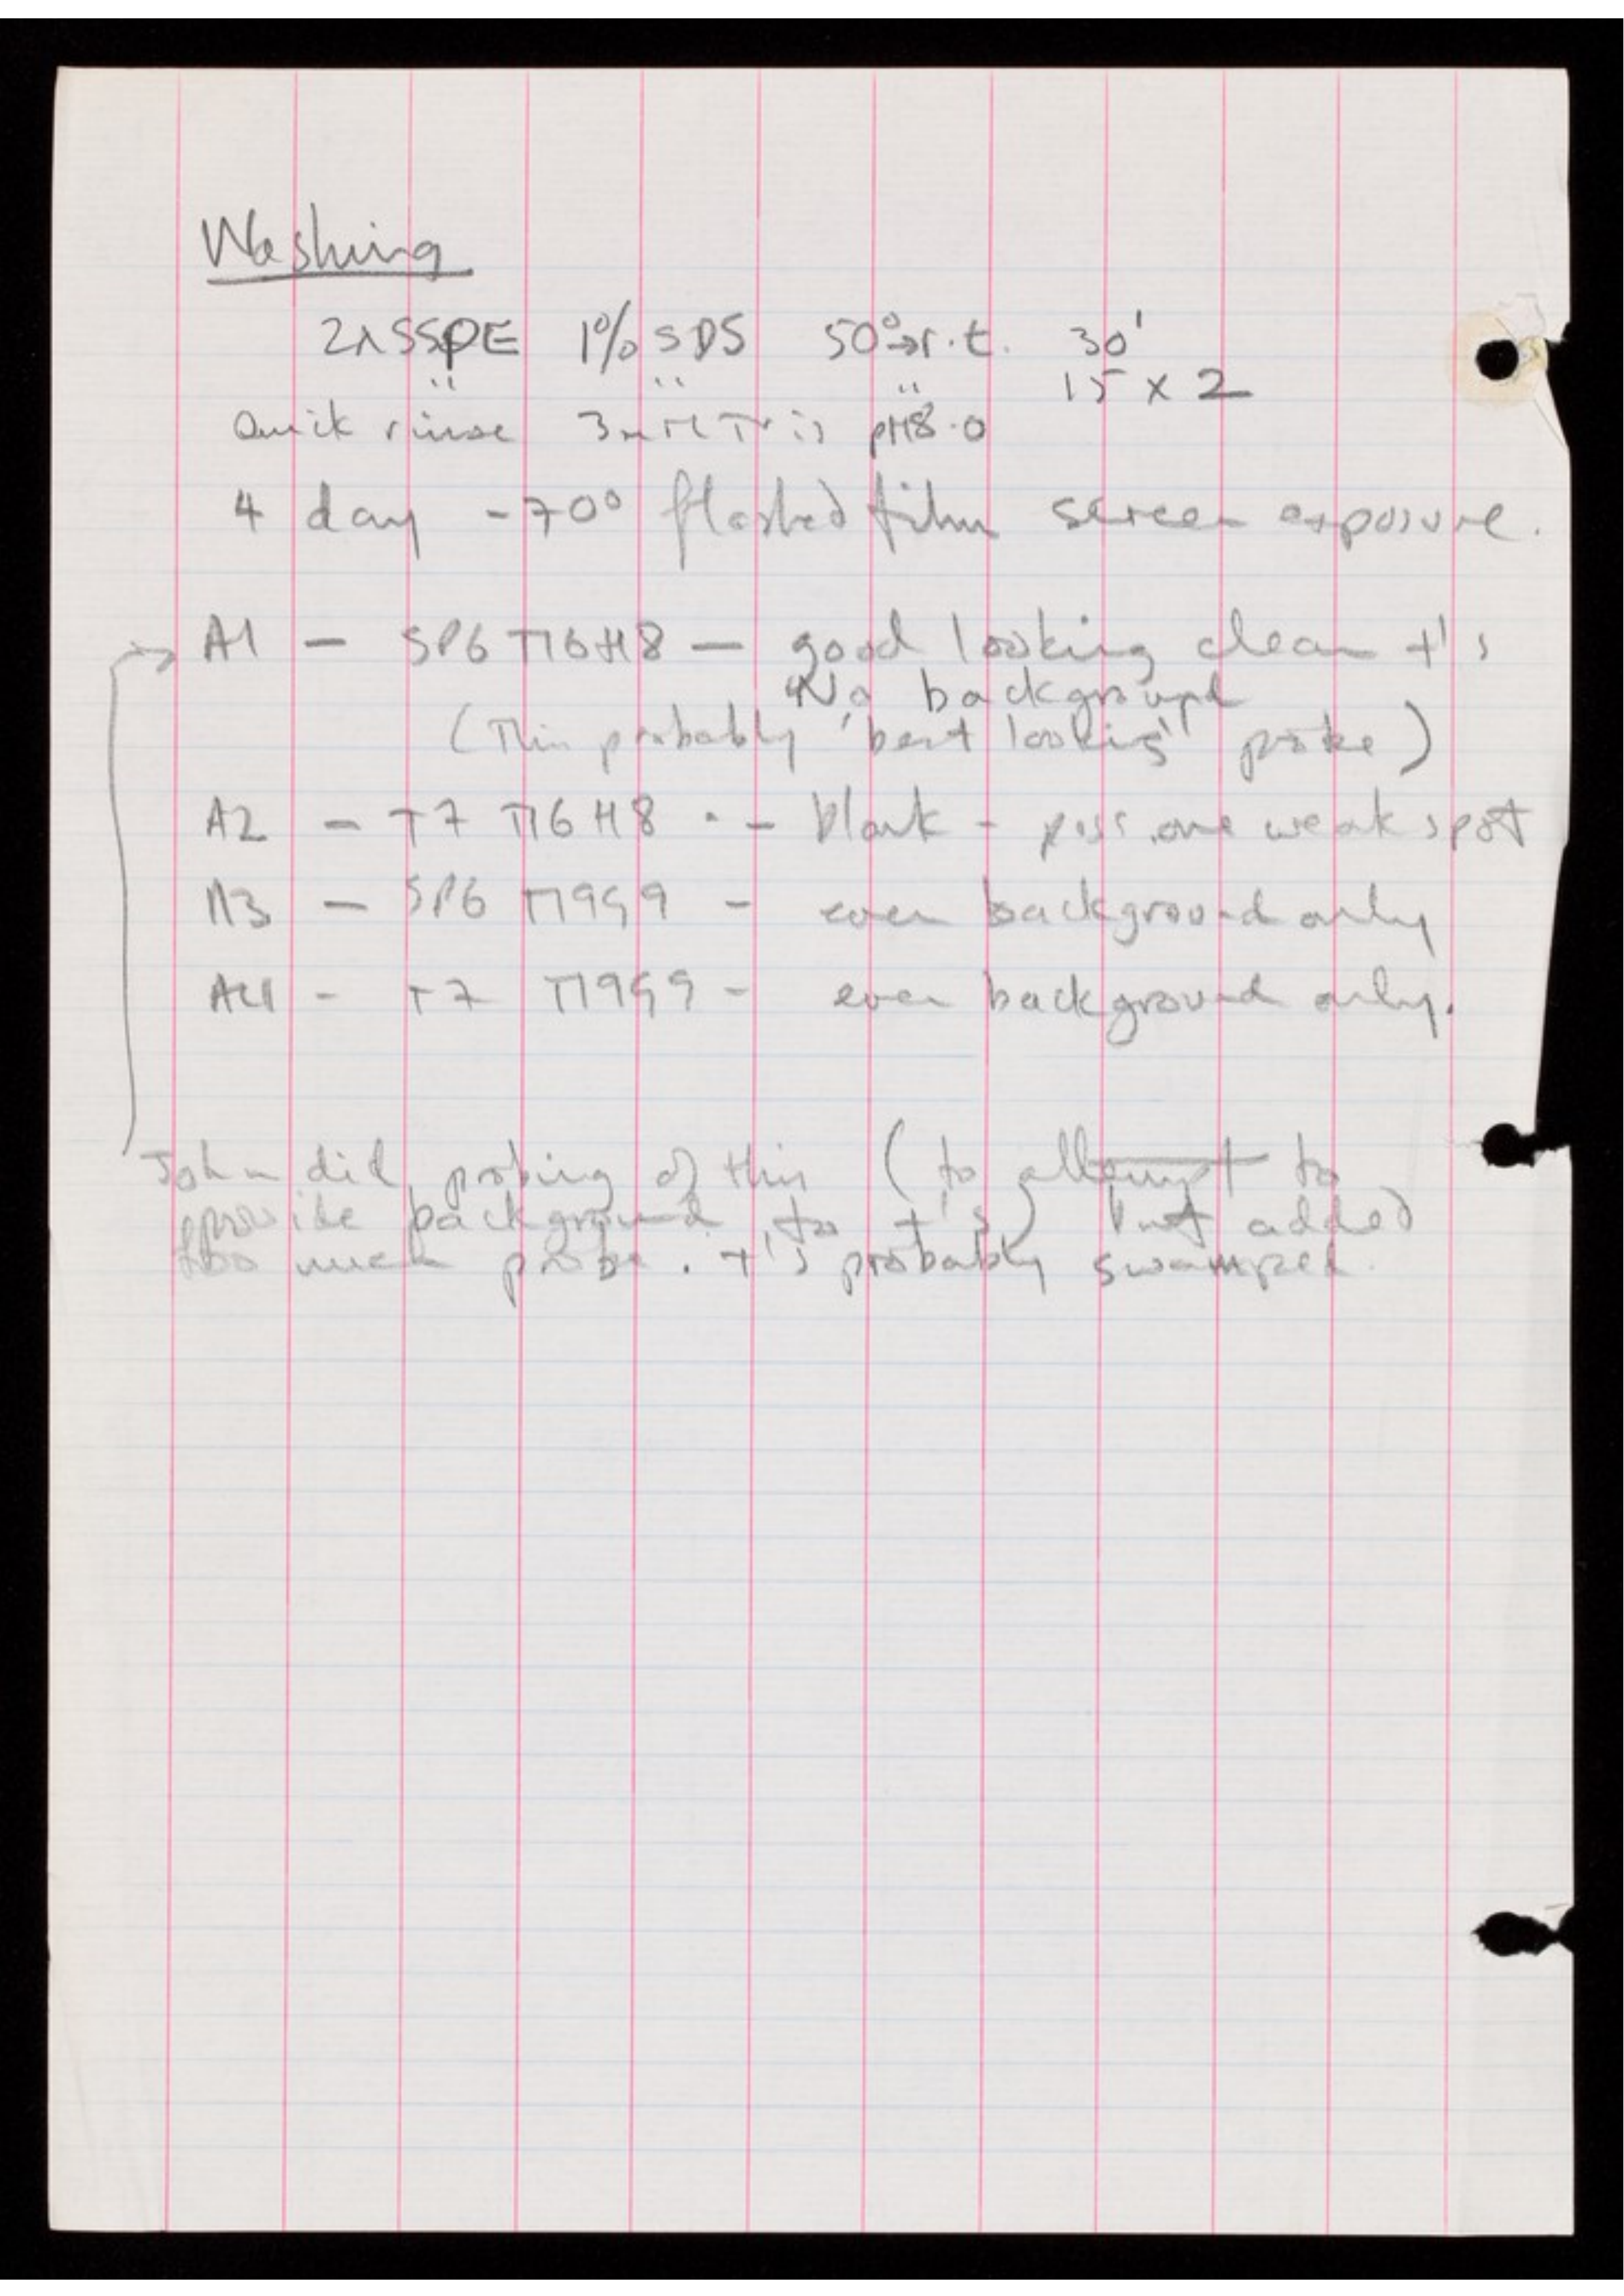 Washing
2x SSPE 1% SDS 50°→r.t. 30'
" " " 15 x 2
Quick rinse 3mM Tris pH8.0
4 day -70° flashed film screen exposure.
A1 — SP6 T16H8 — good looking clean +'s
No background
(This probably 'best looking' probe)
A2 — T7 T16H8 - — blank - poss. one weak spot
A3 — SP6 T19G9 - even background only
A4 - T7 T19G9 - even background only.
John did probing of this (to attempt to
provide background to +'s) but added
too much probe. +'s probably swamped.